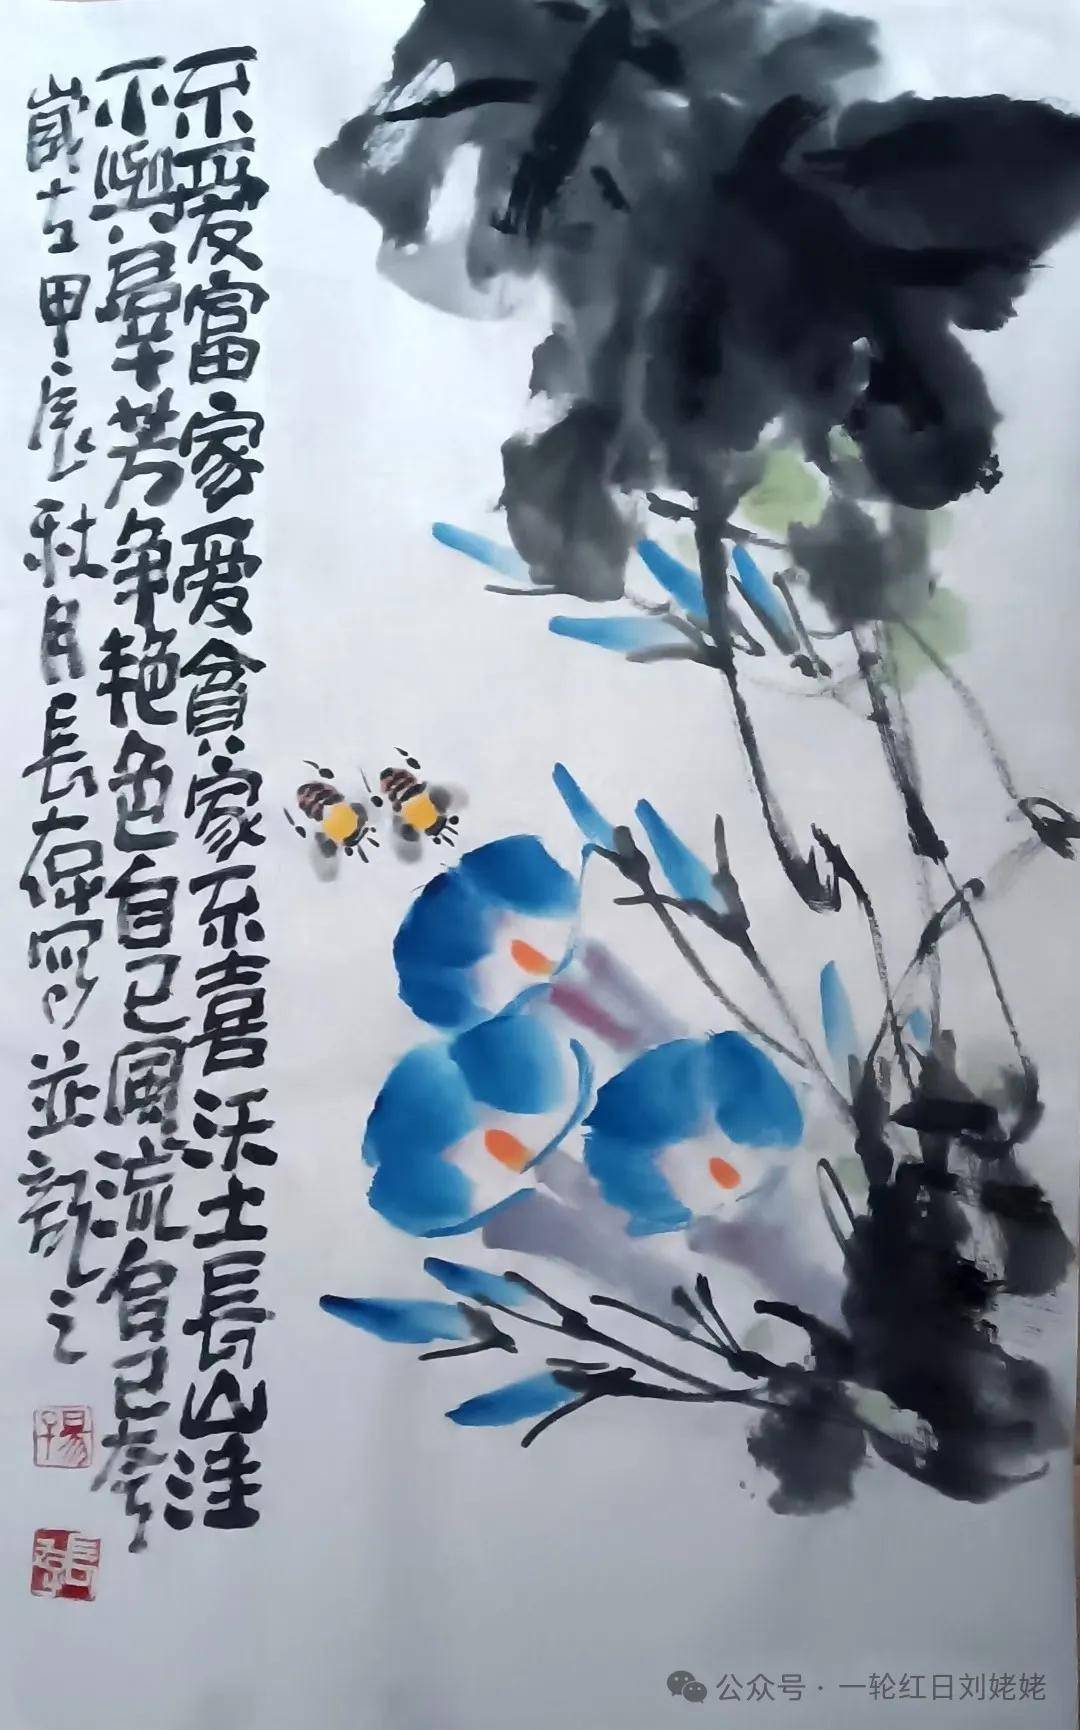 不爱富家爱貧家不喜沃土長山洼
不與羣芳争艳色自己風流自己夸
歲在甲辰秋月長存写並記之
公众号·一轮红日刘姥姥